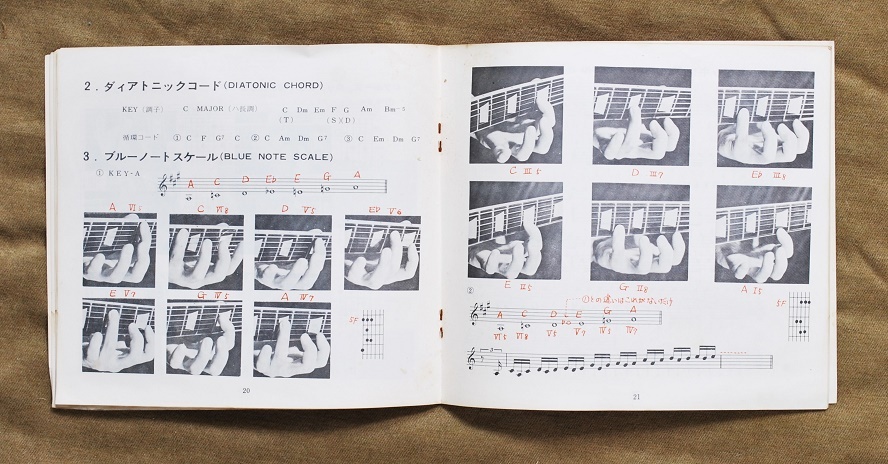 2．ダイアトニックコード(DIATONIC CHORD)
KEY(調子) C MAJOR(ハ長調) C Dm Em F G Am Bm⁻⁵
(T) (SXD)
循環コード ①C F G⁷ C ②C Am Dm G⁷ ③C Em Dm G⁷
3．ブルーノートスケール(BLUE NOTE SCALE)
① KEY-A
A C D E♭ E G A
A Ⅵ5 C Ⅵ8 D Ⅴ5 E♭ Ⅴ6
E Ⅴ7 G Ⅳ5 A Ⅳ7
5F
20
C Ⅲ5 D Ⅲ7 E♭ Ⅲ8
E Ⅱ5 G Ⅱ8 A Ⅰ5
②
①との違いはこれがないだけ
A C D E G A
Ⅵ5 Ⅵ8 Ⅴ5 Ⅴ7 Ⅳ5 Ⅳ7
5F
3
21